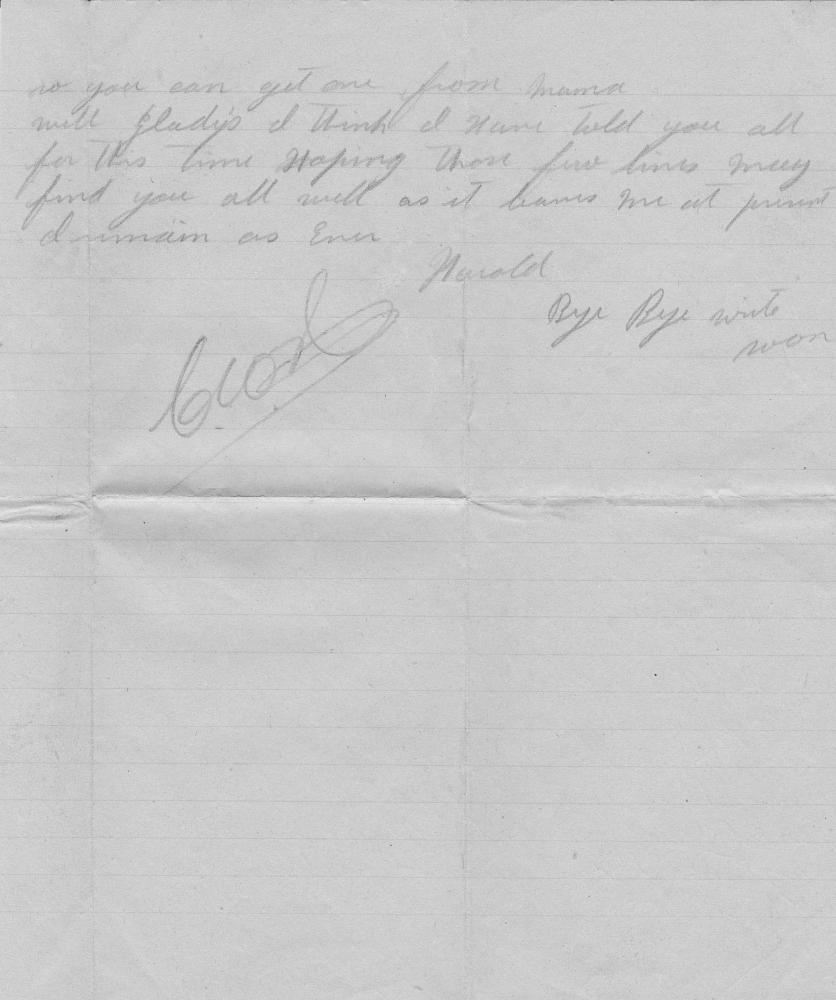 so you can get one from Mama
well Gladys I think I Have told you all
for this time Hoping those few lines may
find you all well as it leaves me at present
I remain as Ever
Harold
Bye Bye write
soon